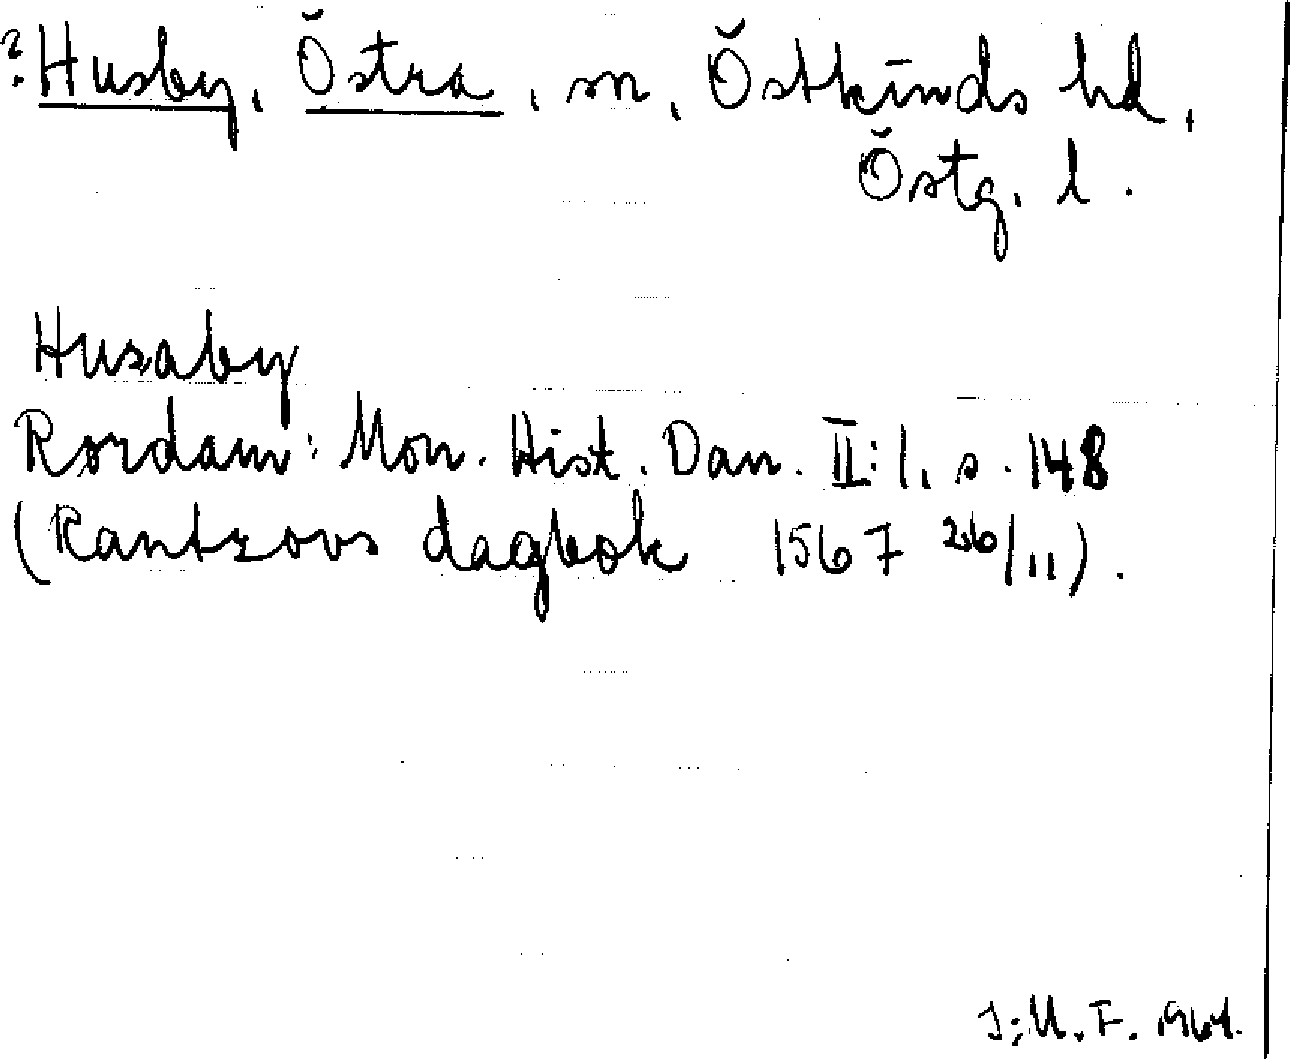 ?Husby, Östra, sn, Östkinds hd,
Östg. l.
Husaby
Rørdam: Mon. Hist. Dan. II:1, s. 148
(Rantzovs dagbok 1567 26/11).
I:U.F. 1964.